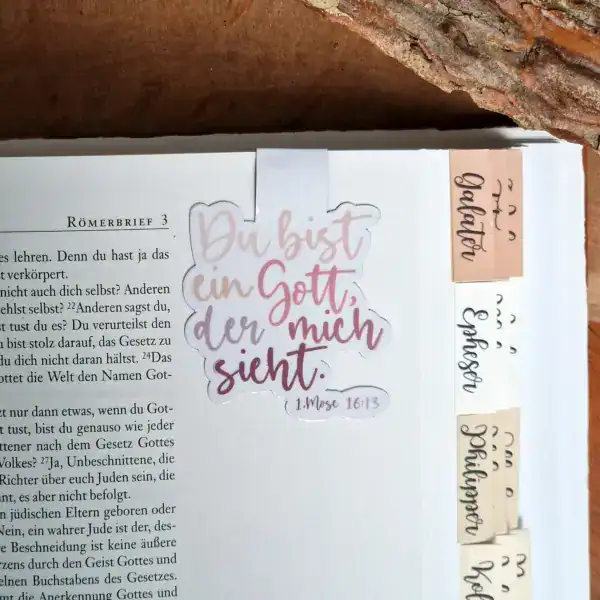 RÖMERBRIEF 3
es lehren. Denn du hast ja das
t verkörpert.
nicht auch dich selbst? Anderen
ehlst selbst? ²²Anderen sagst du,
t tust du es? Du verurteilst den
bist stolz darauf, das Gesetz zu
du dich nicht daran hältst. ²⁴Das
ottet die Welt den Namen Got-
zt nur dann etwas, wenn du Got-
tust, bist du genauso wie jeder
ttener nach dem Gesetz Gottes
Volkes? ²⁷Ja, Unbeschnittene, die
Richter über euch Juden sein, die
nt, es aber nicht befolgt.
n jüdischen Eltern geboren oder
Nein, ein wahrer Jude ist der, des-
e Beschneidung ist keine äußere
rzens durch den Geist Gottes und
elnen Buchstabens des Gesetzes.
mt die Anerkennung Gottes und
Du bist
ein Gott,
der mich
sieht.
1.Mose 16:13
Galater
Epheser
Philipper
Kol